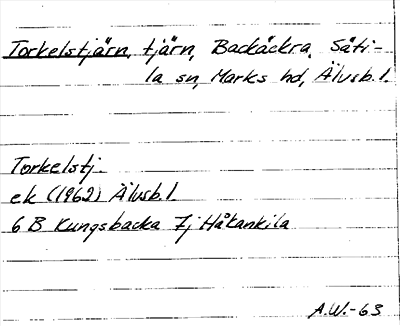 Torkelstjärn, tjärn, Backåckra, Säti-
la sn, Marks hd, Älvsb.l.
Torkelstj.
ek (1962) Älvsb.l.
6 B Kungsbacka 7j Håkankila
A.W.-63